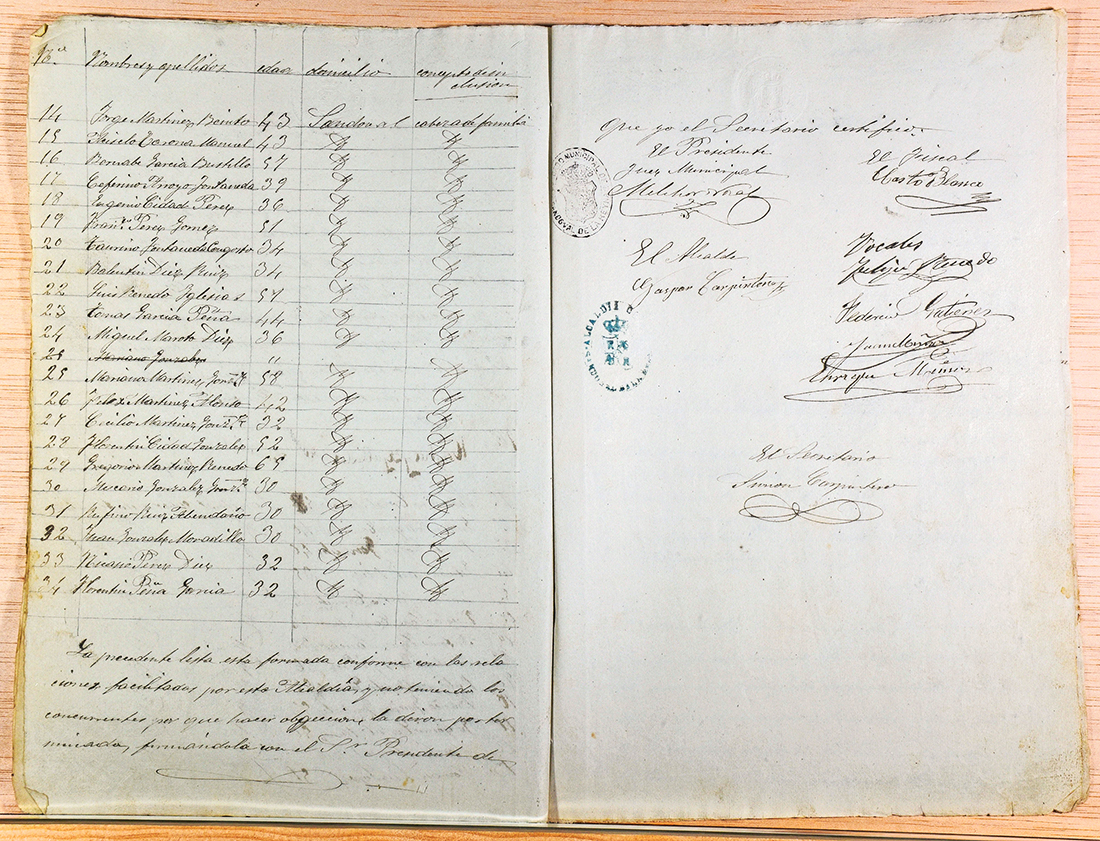 Nº Nombres y apellidos edad domicilio concepto de in
clusion
14 Jorge Martinez Benito 43 Sandoval cabeza de familia
15 Manuel 43 " "
16 Bernabe Garcia Bustillo 57 " "
17 Ceferino Arroyo Fontaneda 39 " "
18 Eugenio Cidad Perez 36 " "
19 Franco Perez Gomez 51 " "
20 Taurino Fontaneda Congosto 34 " "
21 Balentin Diez Ruiz 34 " "
22 Luis Renedo Iglesias 57 " "
23 Tomas Garcia Peña 44 " "
24 Miguel Maroto Diez 36 " "
25 Mariano Gonzalez "
25 Mariano Martinez Gonz 58 " "
26 Felix Martinez Alonso 42 " "
27 Cecilio Martinez Gonz 32 " "
28 Florentin Cidad Gonzalez 52 " "
29 Gregorio Martinez Renedo 65 " "
30 Gonzalez 30 " "
31 Rufino Ruiz Abendaño 30 " "
32 Juan Gonzalez Moradillo 30 " "
33 Perez Diez 32 " "
34 Florentin Peña Garcia 32 " "
La precedente lista esta formada conforme con las rela
ciones facilitadas por esta Alcaldia, y no teniendo los
concurrentes, por que hacer objeccion, la dieron por ter
minada, firmándola con el Sr. Presidente de
Que yo el Secretario certifico.
El Presidente
Juez Municipal
Melchor
El Fiscal
Blanco
El Alcalde
Gaspar Carpintero
Vocales
Felipe Renedo
Federico Gutierrez
Enrique
El Secretario
Simon Carpintero